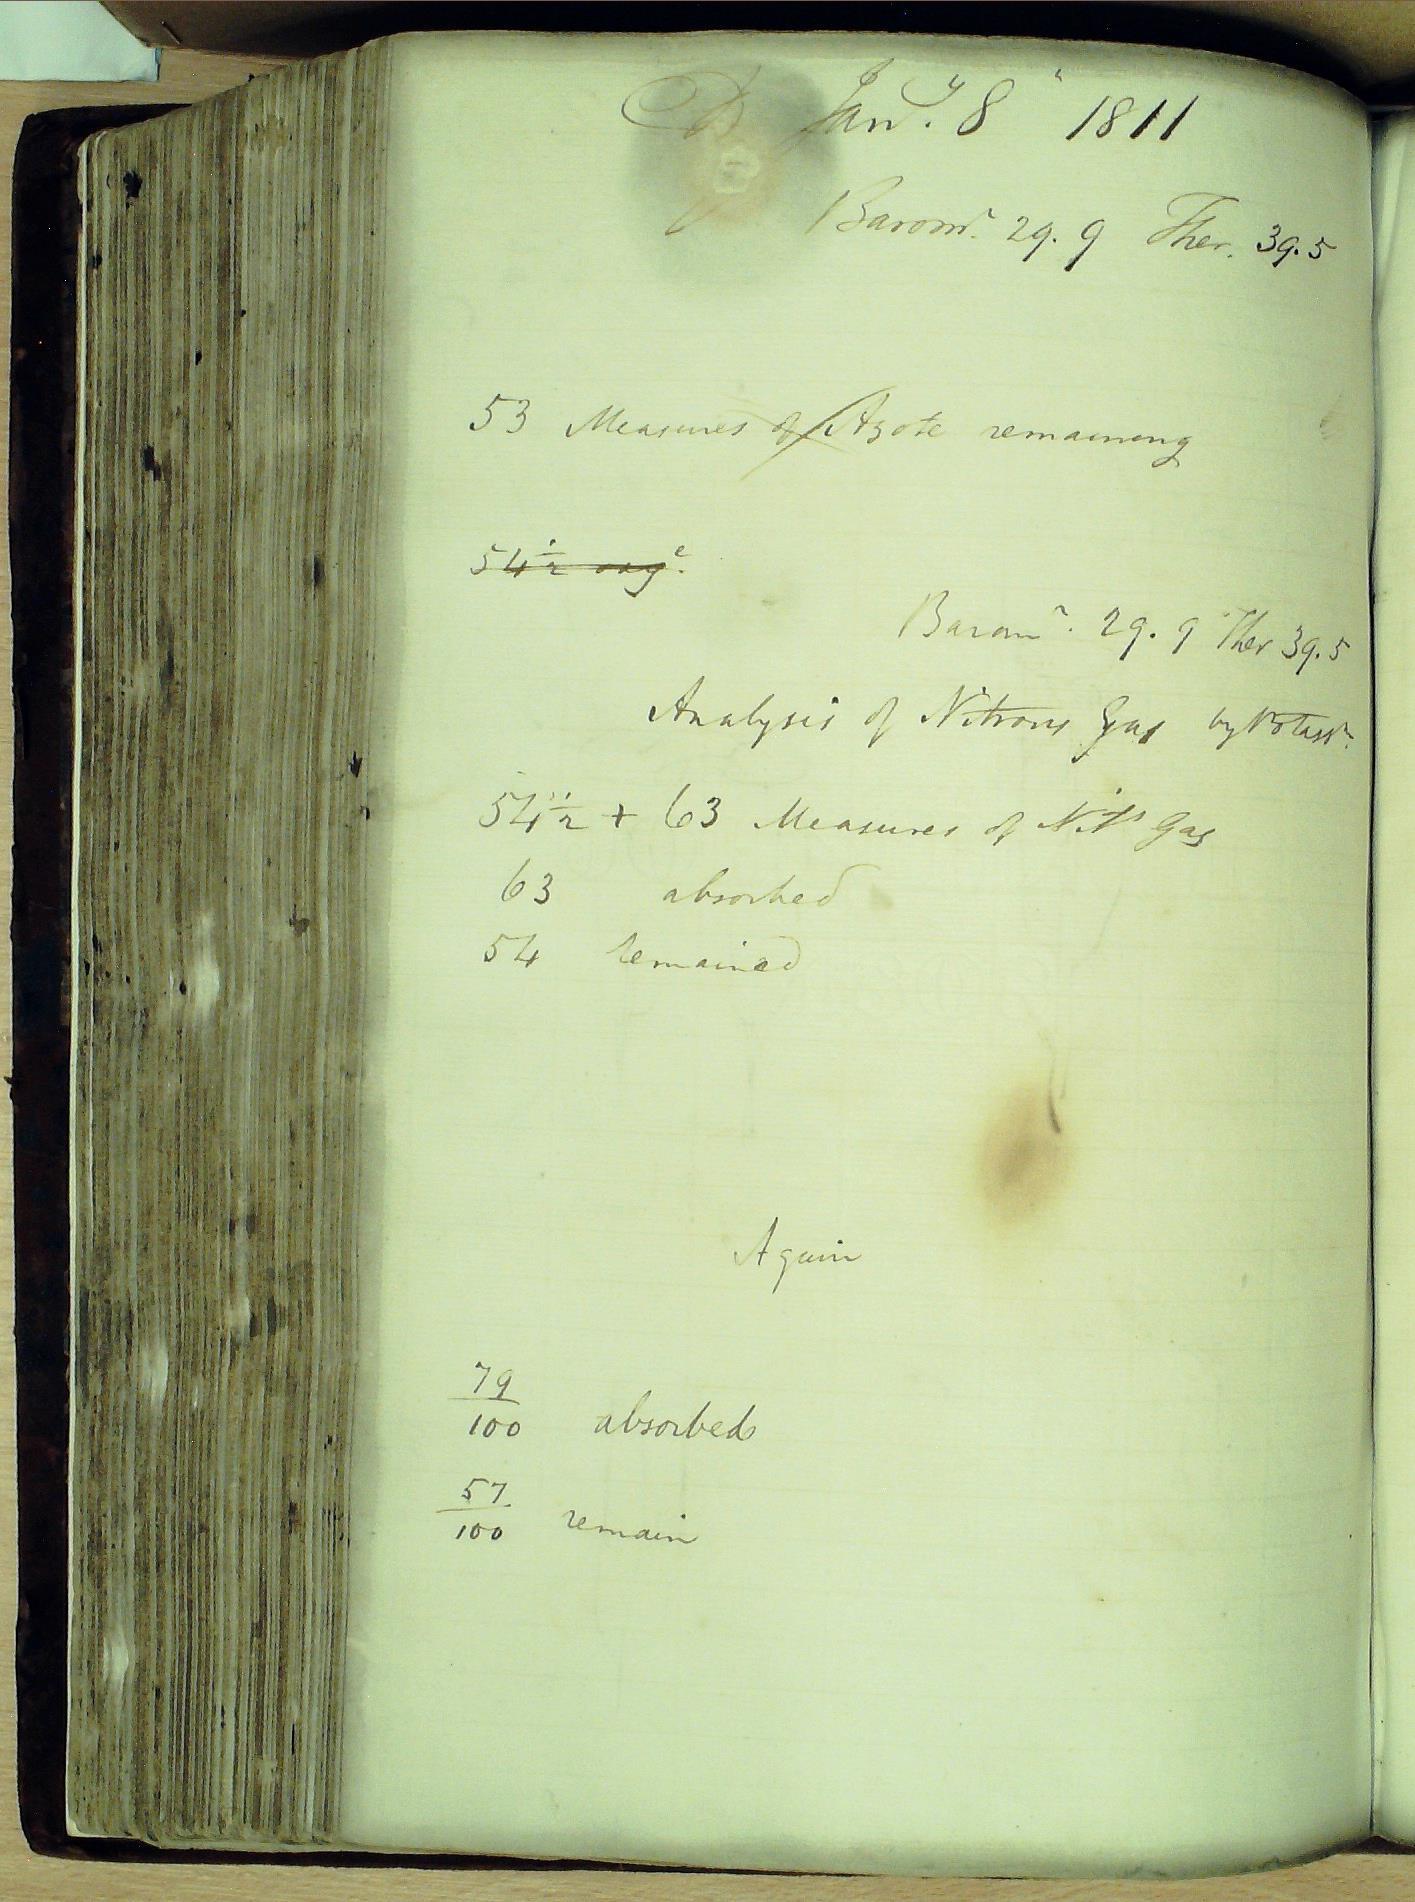 Jany. 8th 1811
Baromr. 29.9 Ther. 39.5
53 Measures of Azote remaining
54 1/2 oxye.
Baromr. 29.9 Ther 39.5
Analysis of Nitrous Gas by Potassm.
54 1/2 + 63 Measures of Nits Gas
63 absorbed
54 remained
Again
79/100 absorbed
57/100 remain